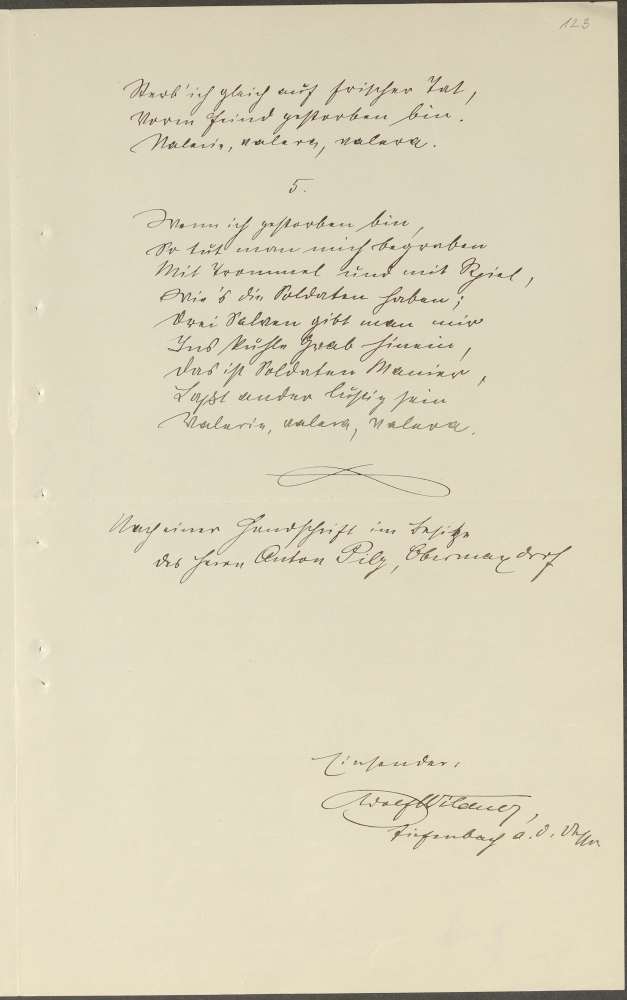 123
Sterb' ich gleich auf frischer Tat,
Vorm Feind gestorben bin.
Valerie, valera, valera.
5.
Wenn ich gestorben bin,
So tut man mich begraben
Mit Trommel und mit Spiel,
Wie's die Soldaten haben;
Drei Salven gibt man mir
Ins kühle Grab hinein,
Das ist Soldaten Manier,
Laßt ander lustig sein
Valerie, valera, valera.
Nach einer Handschrift im Besitze
des Herrn Anton Pilz, Obermaxdorf
Einsender:
Adolf
Tiefenbach a. d.